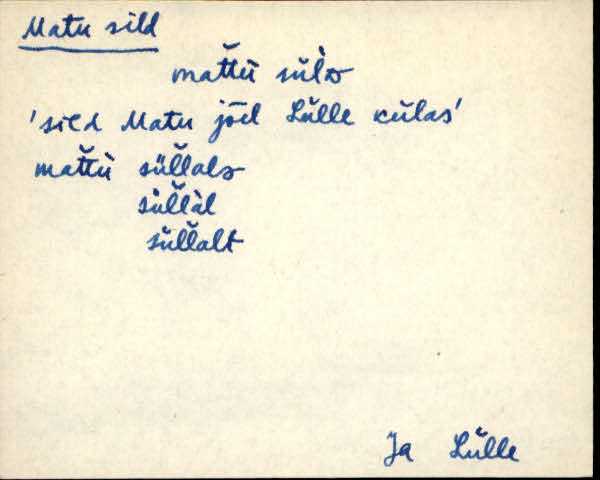 Matu sild
mat̆t̆ü sül̀ᴅ
'sild Matu jõel Lülle külas'
mat̆t̆ü sül̆l̆alᴅ
sül̆l̆äl
sül̆l̆alt
Ja Lülle